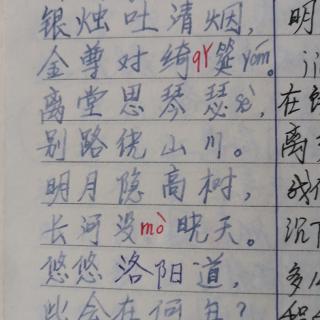 银烛吐清烟，
金尊对绮qǐ筵yán。
离堂思琴瑟sè，
别路绕山川。
明月隐高树，
长河没mò晓天。
悠悠洛阳道，
此会在何年？
明
在
离
我们
沉下
多